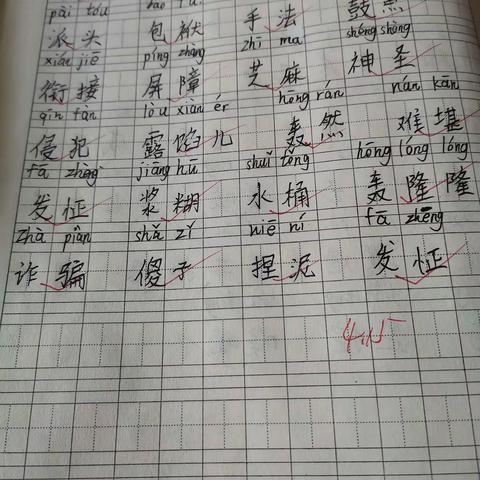 pài tóu bāo fu
派头 包袱 手法 鼓点
xián jiē píng zhàng zhī ma shén shèng
衔接 屏障 芝麻 神圣
qīn fàn lòu xiàn ér hōng rán nán kān
侵犯 露馅儿 轰然 难堪
fā zhèng jiāng hū shuǐ tǒng hōng lóng lóng
发怔 浆糊 水桶 轰隆隆
zhà piàn shǎ zǐ niē ní fā zhēng
诈骗 傻子 捏泥 发怔
4.15